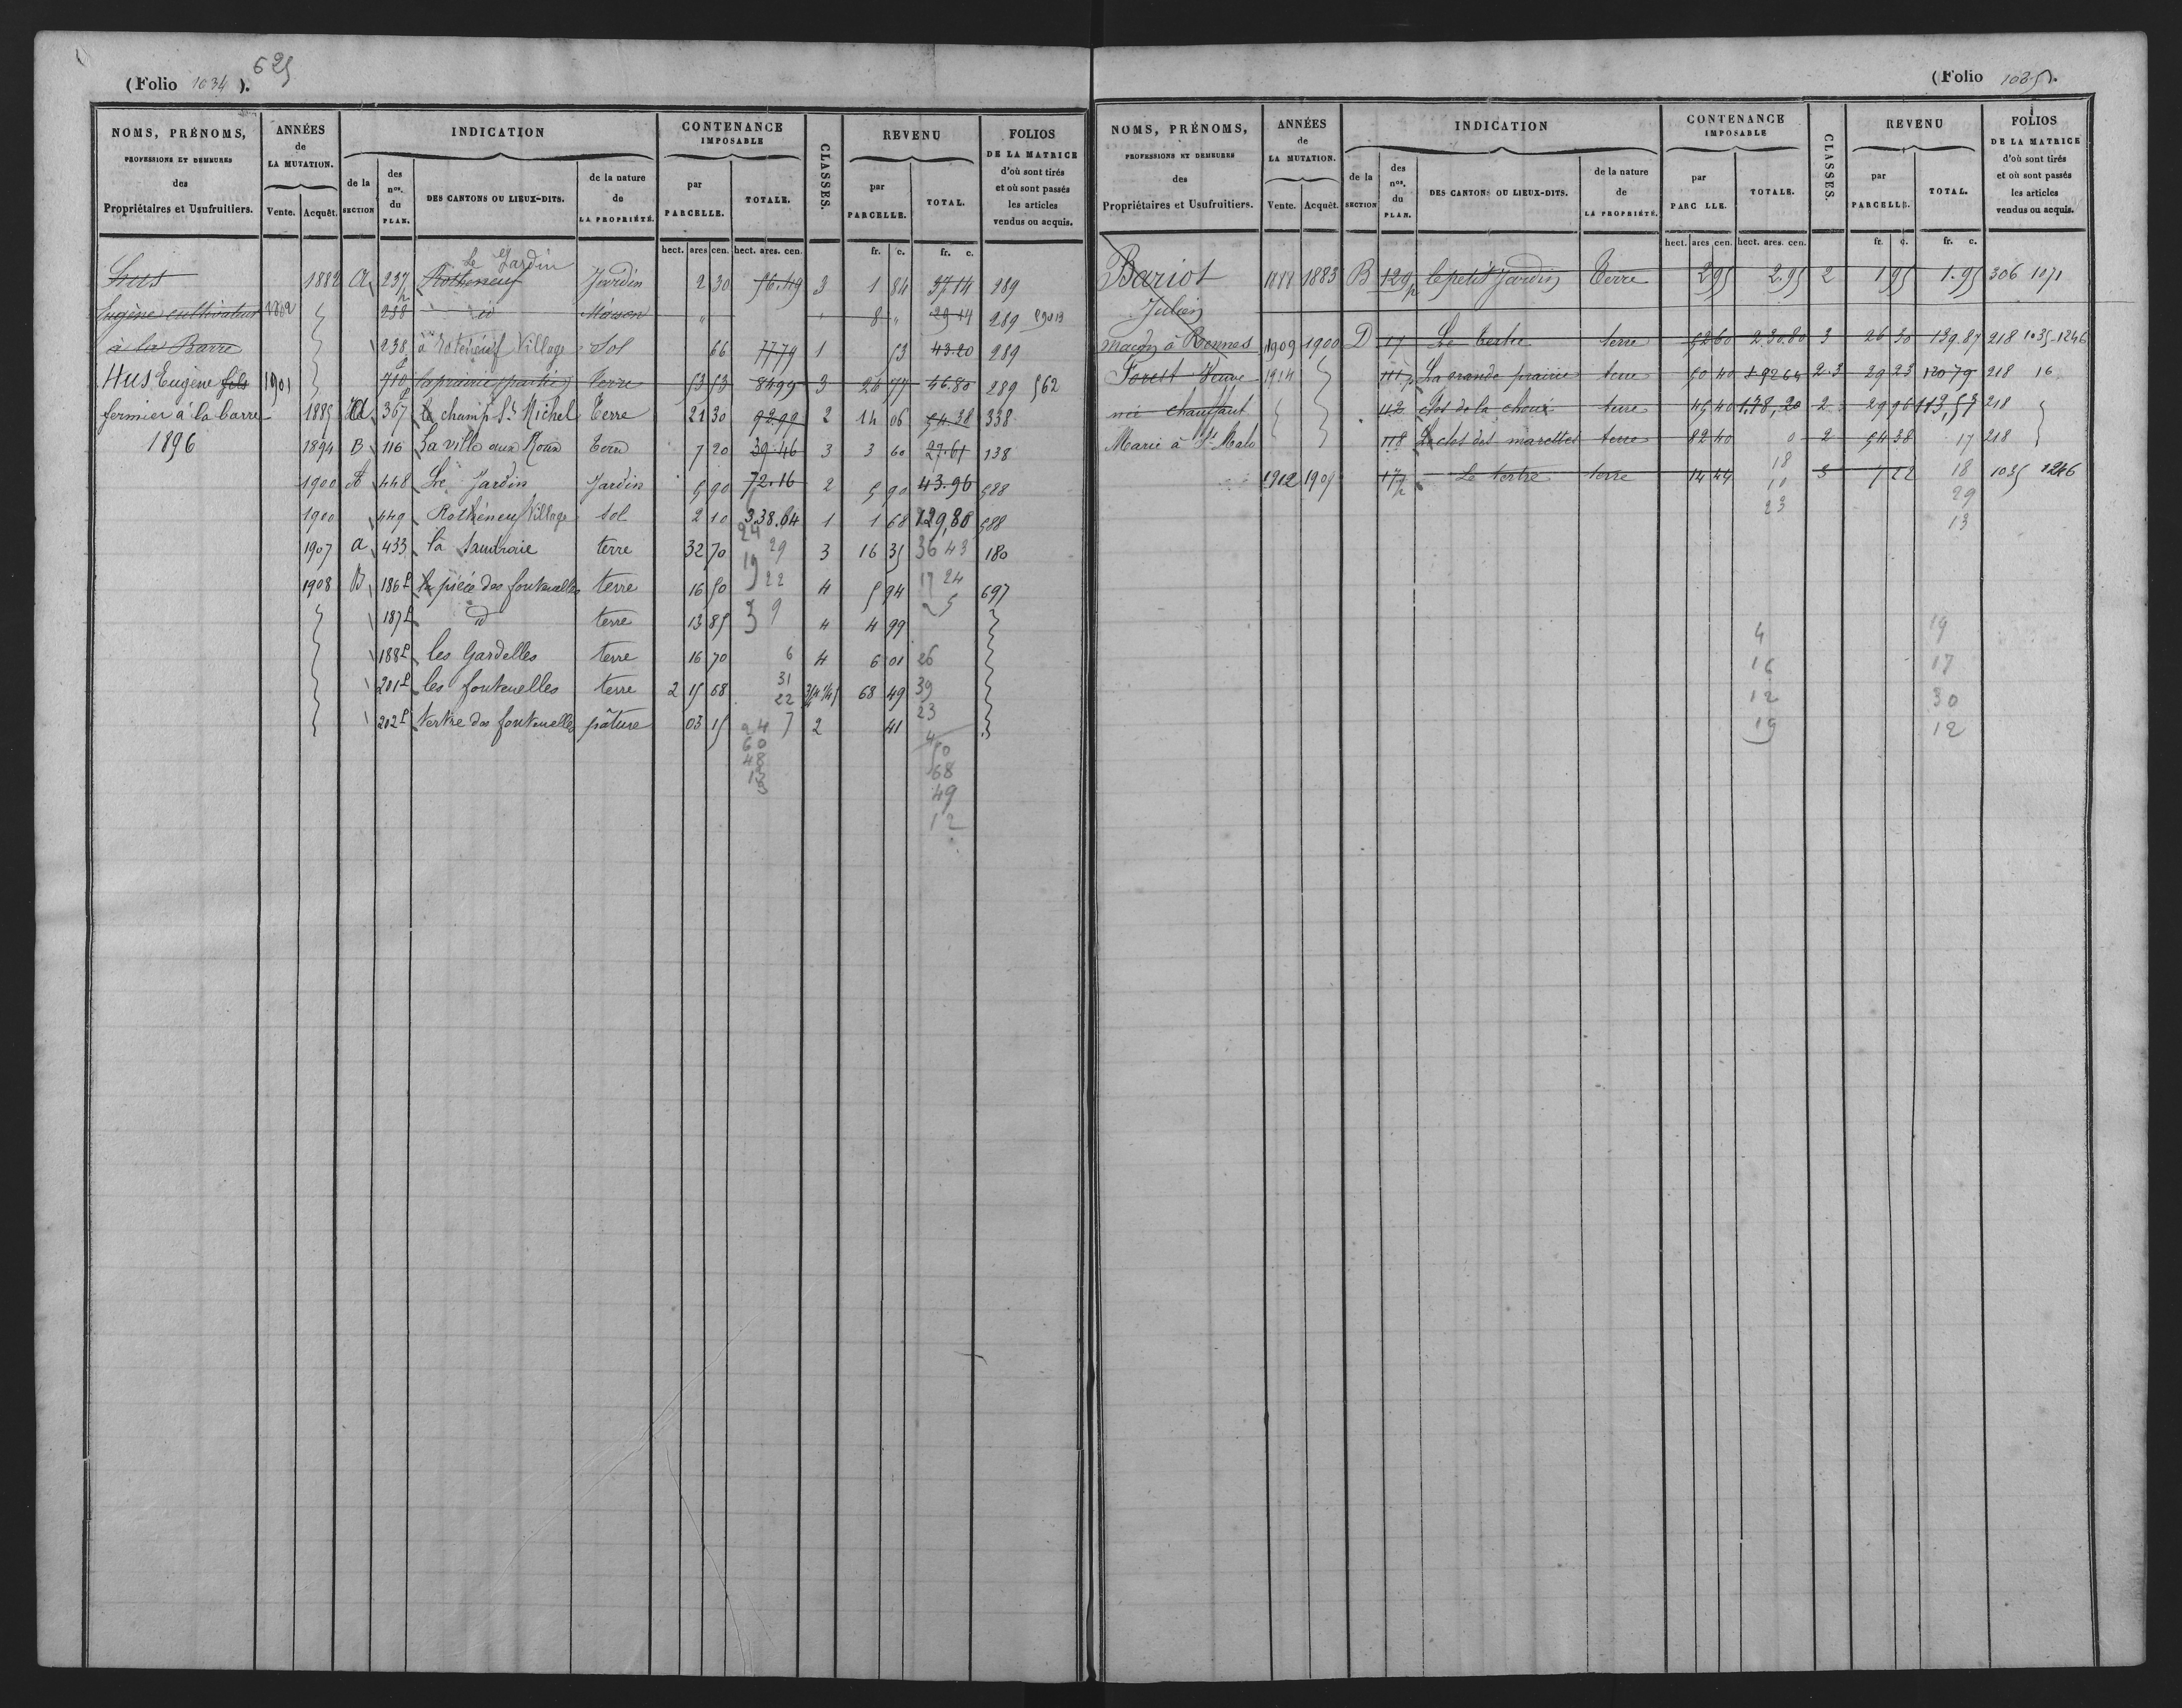 (Folio 1034). 625
NOMS, PRÉNOMS, PROFESSIONS ET DEMEURES des Propriétaires et Usufruitiers.
ANNÉES de LA MUTATION. Vente. Acquêt.
INDICATION de la SECTION des nos. du PLAN. DES CANTONS OU LIEUX-DITS. de la nature de LA PROPRIÉTÉ.
CONTENANCE IMPOSABLE par PARCELLE. TOTALE.
CLASSES.
REVENU par PARCELLE. TOTAL.
FOLIOS DE LA MATRICE d'où sont tirés et où sont passés les articles vendus ou acquis.
hect. ares cen. hect. ares. cen. fr. c. fr. c.
Le Jardin
Hus 1882 A 237 p Rothéneuf Jardin 2 30 56.49 3 1 84 37 14 289
Eugène cultivateur 238 id Maison " " 8 " 29 14 289
à la Barre 238 à Roteneuf Village Sol 66 77.79 1 53 43.20 289
Hus Eugène fils 1901 710 p la prairie (partie) Terre 53 53 84 99 3 26 77 46.80 289 562
fermier à la barre 1885 A 367 le champ St Michel Terre 21 30 92.99 2 14 06 54.38 338
1896 1894 B 116 La ville aux Roux Terre 7 20 39.46 3 3 60 27.61 138
1900 A 448 Le Jardin Jardin 5 90 72.16 2 5 90 43.96 588
1900 449 Rothéneuf Village Sol 2 10 338.64 1 1 68 129,80 588
1907 A 433 la Saudraie terre 32 70 3 16 35 36 43 180
1908 B 186 p la pièce des fontenelles terre 16 50 4 5 94 697
187 p id terre 13 85 4 4 99
188 p les Gardelles terre 16 70 4 6 01
201 p les fontenelles terre 2 15 68 68 49
202 p tertre des fontenelles pâture 03 15 2 41
24 29
19 22
9
6
31
22
24 7
60
48
13
17 24
25
26
39
23
4
50
68
49
12
(Folio 1035).
NOMS, PRÉNOMS, PROFESSIONS ET DEMEURES des Propriétaires et Usufruitiers.
ANNÉES de LA MUTATION. Vente. Acquêt.
INDICATION de la SECTION des nos. du PLAN. DES CANTONS OU LIEUX-DITS. de la nature de LA PROPRIÉTÉ.
CONTENANCE IMPOSABLE par PARC LLE. TOTALE.
CLASSES.
REVENU par PARCELLE. TOTAL.
FOLIOS DE LA MATRICE d'où sont tirés et où sont passés les articles vendus ou acquis.
hect. ares cen. hect. ares. cen. fr. c. fr. c.
Bariot 1888 1883 B 129 p le petit Jardin Terre 2 95 2.95 2 1 95 1.95 306 1071
Julien
maçon à Rennes 1909 1900 D 17 Le tertre terre 52 60 2.30.80 3 26 30 139.87 218 1035-1246
Forest Veuve 1914 111 p La grande prairie terre 50 40 2.3 29 23 120 79 218 16
née Chauffaut 112 clos de la terre 45 40 1.78,20 2 29 96 113,57 218
Marie à St Malo 118 Le clos des marettes terre 82 40 2 54 38 218
1912 1909 17 p Le tertre terre 14 44 3 7 22 1035 1246
18
10
23
17
18
29
13
4
16
12
19
19
17
30
12